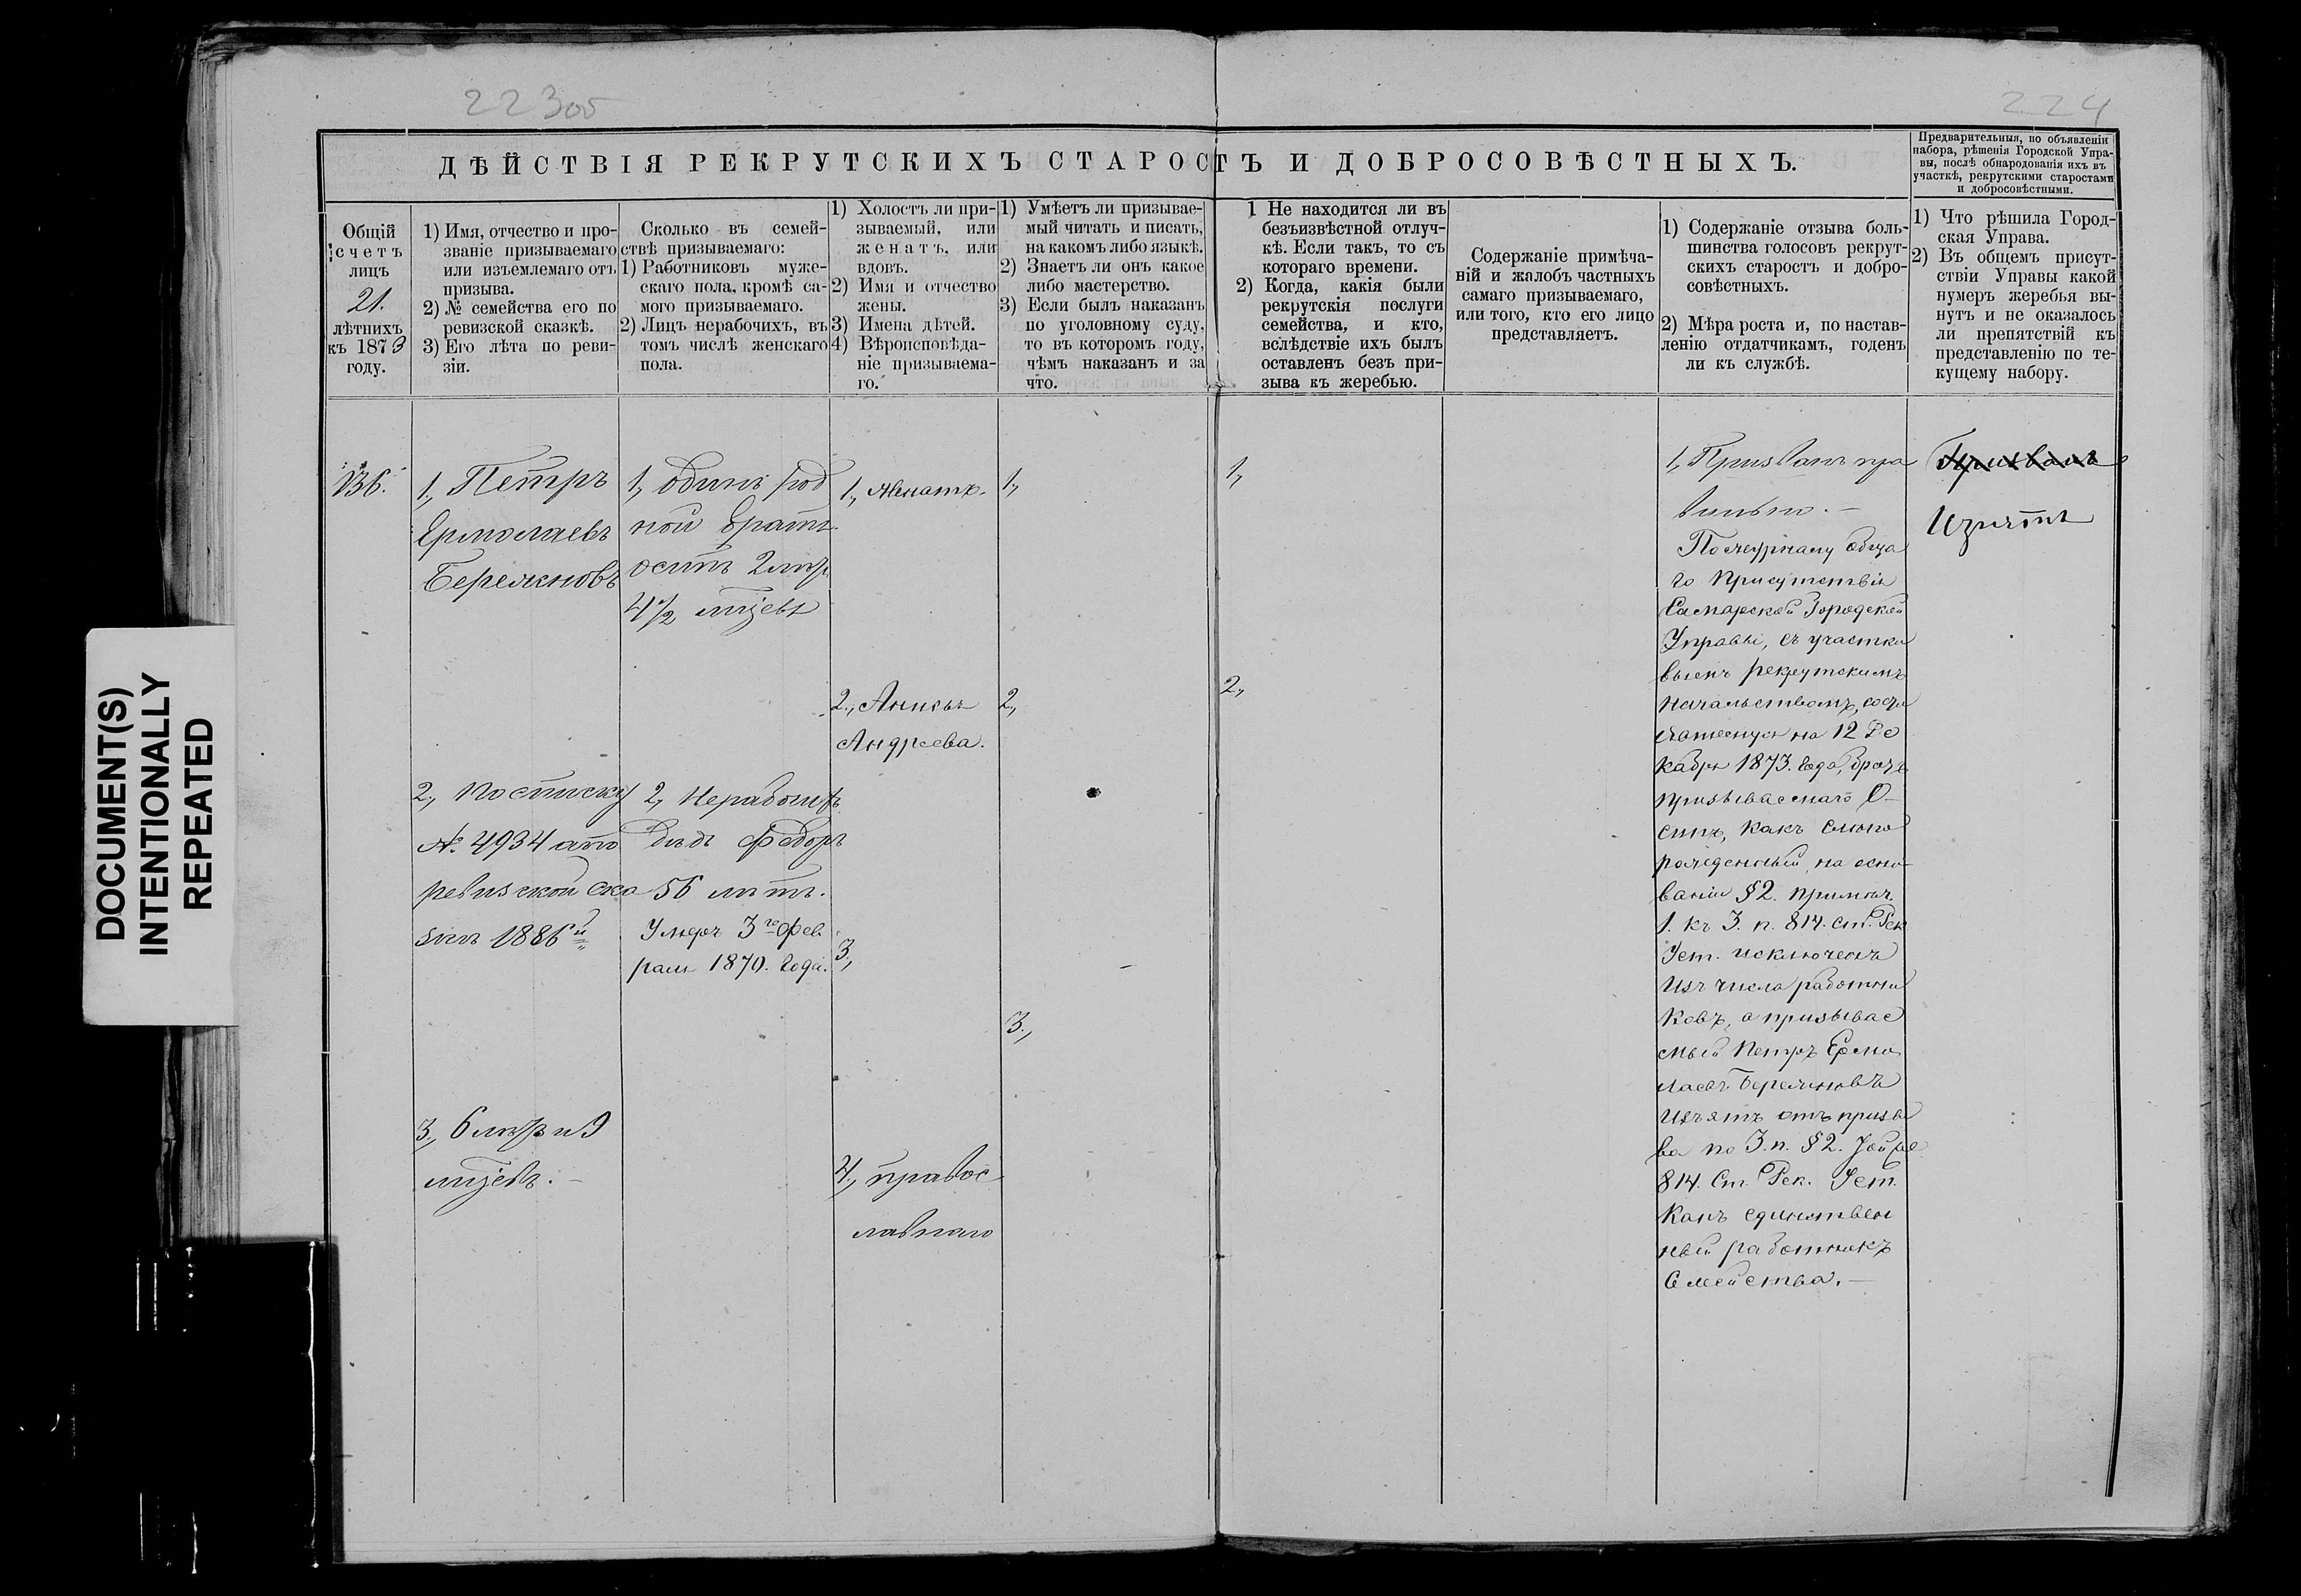 223об
224
ДѢЙСТВІЯ РЕКРУТСКИХЪ СТАРОСТЪ И ДОБРОСОВѢСТНЫХЪ.
Предварительныя, по объявленіи
набора, рѣшенія Городской Упра-
вы, послѣ обнародованія ихъ въ
участкѣ, рекрутскими старостами
и добросовѣстными.
Общій
счетъ
лицъ
21.
лѣтнихъ
къ 1873
году.
1) Имя, отчество и про-
званіе призываемаго
или изъемлемаго отъ
призыва.
2) № семейства его по
ревизской сказкѣ.
3) Его лѣта по реви-
зіи.
Сколько въ семей-
ствѣ призываемаго:
1) Работниковъ муже-
скаго пола, кромѣ са-
мого призываемаго.
2) Лицъ нерабочихъ, въ
томъ числѣ женскаго
пола.
1) Холостъ ли при-
зываемый, или
женатъ, или
вдовъ.
2) Имя и отчество
жены.
3) Имена дѣтей.
4) Вѣроисповѣда-
ніе призываема-
го.
1) Умѣетъ ли призывае-
мый читать и писать,
на какомъ либо языкѣ.
2) Знаетъ ли онъ какое
либо мастерство.
3) Если былъ наказанъ
по уголовному суду,
то въ которомъ году,
чѣмъ наказанъ и за
что.
1 Не находится ли въ
безъизвѣстной отлуч-
кѣ. Если такъ, то съ
котораго времени.
2) Когда, какія были
рекрутскія послуги
семейства, и кто,
вслѣдствіе ихъ былъ
оставленъ безъ при-
зыва къ жеребью.
Содержаніе примѣча-
ній и жалобъ частныхъ
самаго призываемаго,
или того, кто его лицо
представляетъ.
1) Содержаніе отзыва боль-
шинства голосовъ рекрут-
скихъ старостъ и добро-
совѣстныхъ.
2) Мѣра роста и, по настав-
ленію отдатчикамъ, годенъ
ли къ службѣ.
1) Что рѣшила Город-
ская Управа.
2) Въ общемъ присут-
ствіи Управы какой
нумеръ жеребья вы-
нутъ и не оказалось
ли препятствій къ
представленію по те-
кущему набору.
136.
1, Петръ
Ермолаевъ
Бережновъ
2, по списку
№ 4934 а по
ревизской ска
зкѣ 1886й
3, 6 лѣтъ и 9
мѣсяцевъ. –
1, одинъ род
ной братъ
Осипъ 2 лѣтъ
4½ мѣсяцевъ
2, Нерабочихъ
дѣдъ Федоръ
56 лѣтъ.
Умеръ 3го фев
раля 1870. года.
1, Женатъ.
2, Анисья
Андреева.
3,
4, правос
лавнаго
1,
2,
3,
1,
2,
1, Призванъ пра
вильно. –
По журналу обща
го Присутствія
Самарской Городской
Управы, съ участко
вымъ рекрутскимъ
Начальствомъ, состо
явшемуся на 12 Де
кабря 1873. года, братъ
призываемаго О
сипъ, какъ
на осно
ваніи § 2. примѣч.
1. къ 3. п. 814. ст. Рек
Уст. исключенъ
изъ числа работни
ковъ, а призывае
мый Петръ Ермо
лаевъ Бережновъ
Изъятъ отъ призы
ва по 3. п. § 2.
814. Ст. Рек. Уст.
какъ единствен
ный работникъ
Семейства. –
Призванъ
Изъятъ
DOCUMENT(S)
INTENTIONALLY
REPEATED